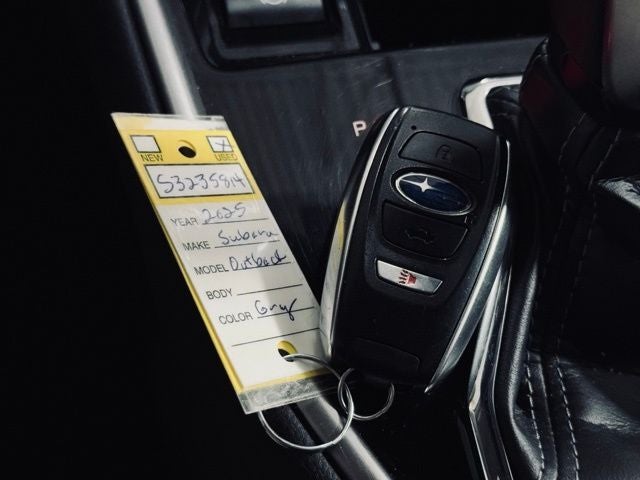 NEW USED
S3235814
YEAR 2025
MAKE Subaru
MODEL Outback
BODY
COLOR Gray
P